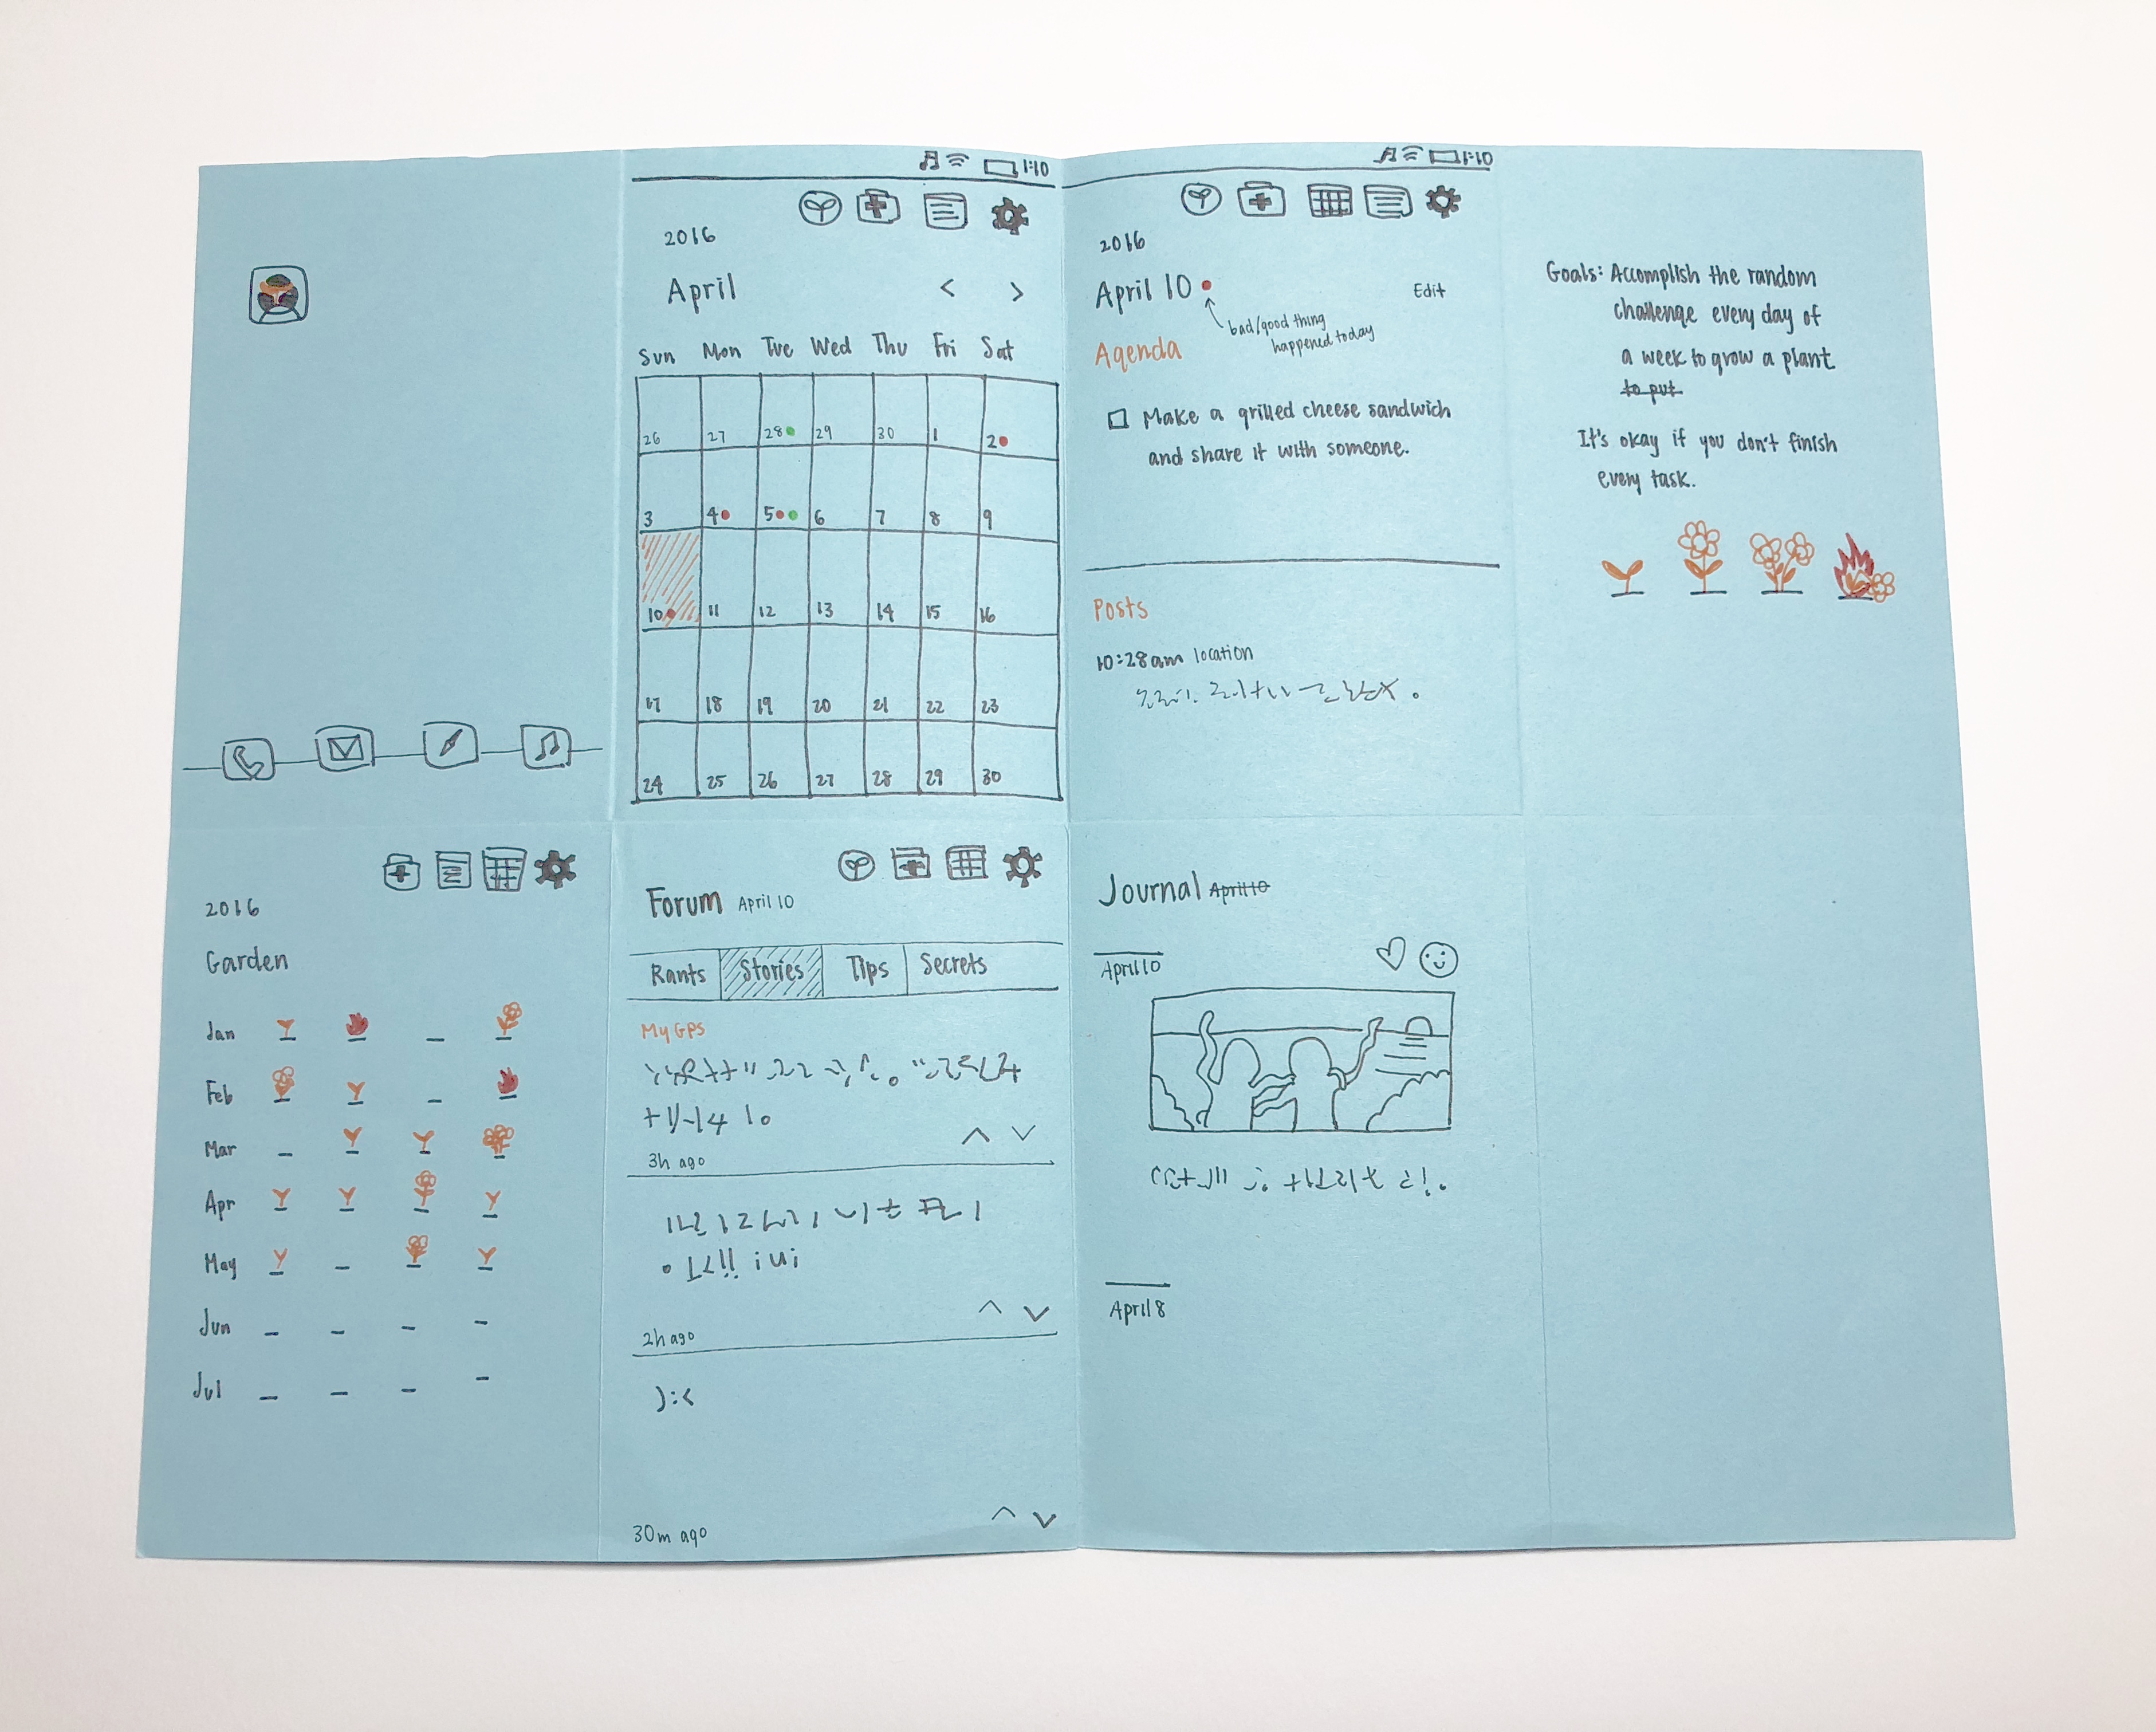 1:10
2016
April
< >
Sun Mon Tue Wed Thu Fri Sat
26 27 28 29 30 1 2
3 4 5 6 7 8 9
10 11 12 13 14 15 16
17 18 19 20 21 22 23
24 25 26 27 28 29 30
1:10
2016
April 10
Edit
bad/good thing
happened today
Agenda
Make a grilled cheese sandwich
and share it with someone.
Posts
10:28am location
Goals: Accomplish the random
challenge every day of
a week to grow a plant
to put
It's okay if you don't finish
every task.
2016
Garden
Jan
Feb
Mar
Apr
May
Jun
Jul
Forum April 10
Rants Stories Tips Secrets
My GPS
3h ago
2h ago
):<
30m ago
Journal April 10
April 10
April 8